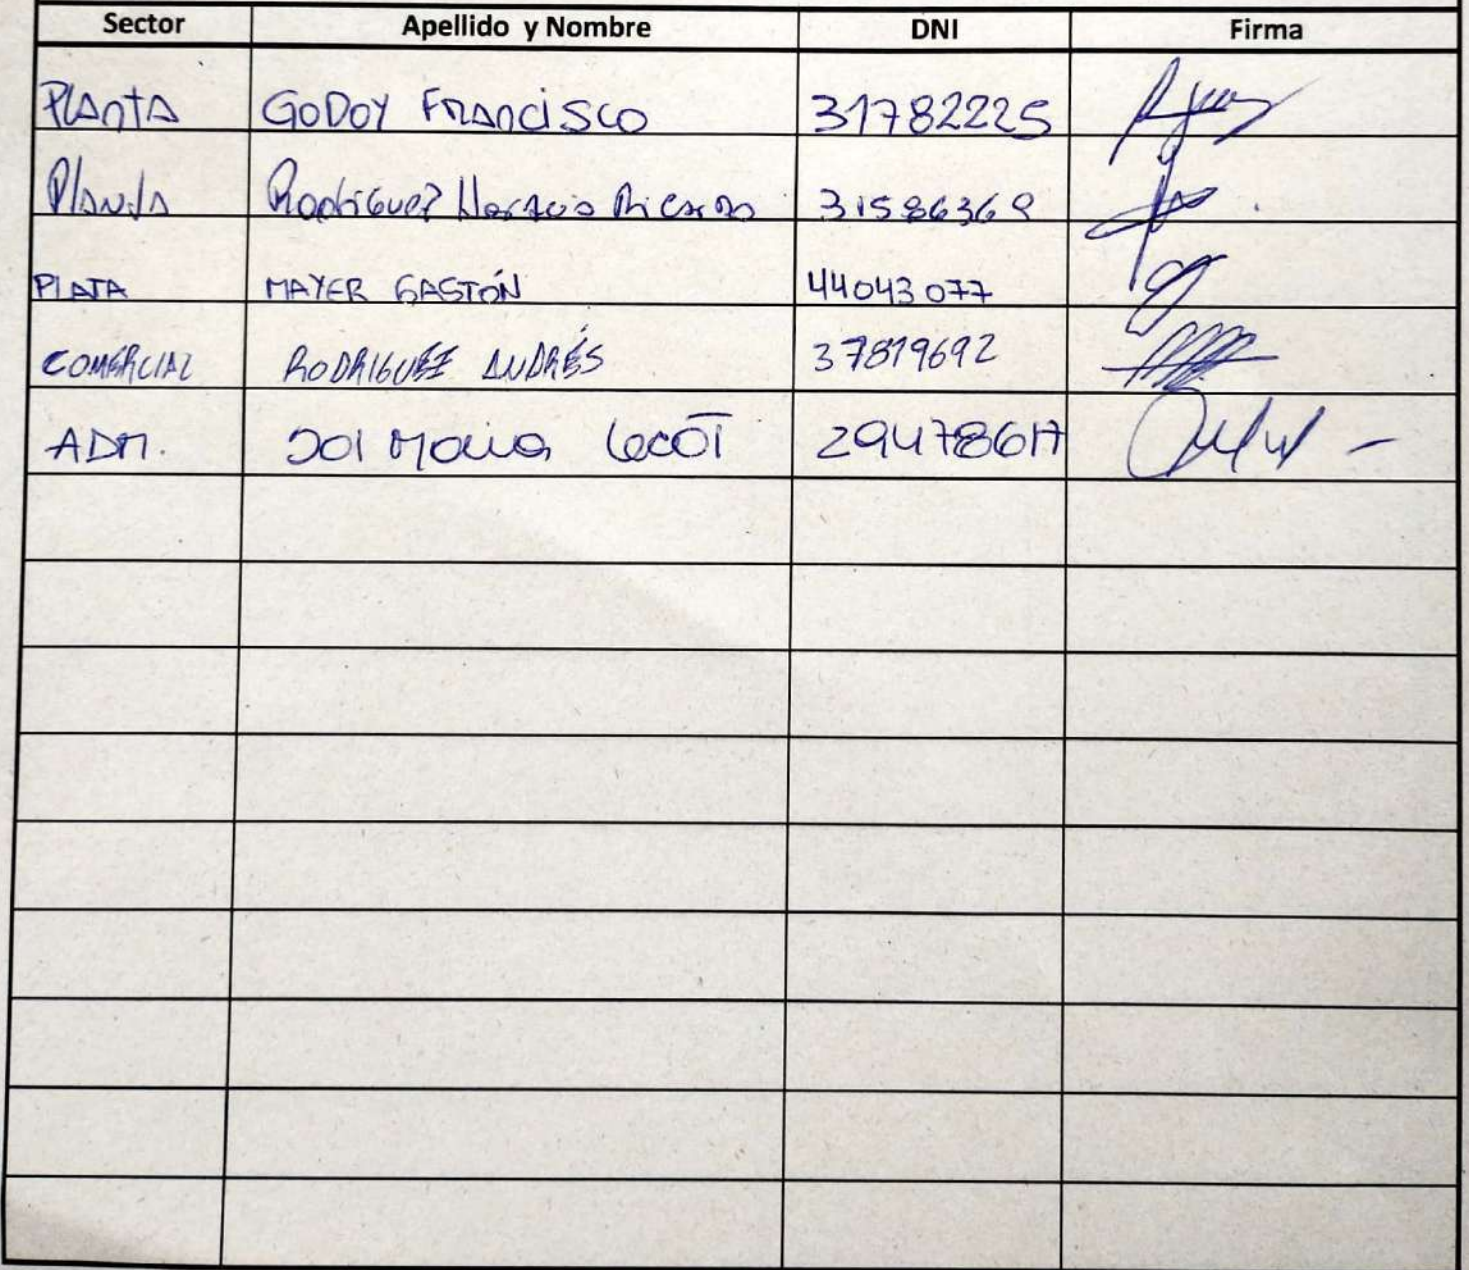 Sector Apellido y Nombre DNI Firma
Planta GODOY FRANCISCO 31782225
Planta Rodriguez Horacio Ricardo 31586369
PLATA MAYER GASTÓN 44043077
COMERCIAL RODRIGUEZ ANDRÉS 37819692
ADM. Sol Maria